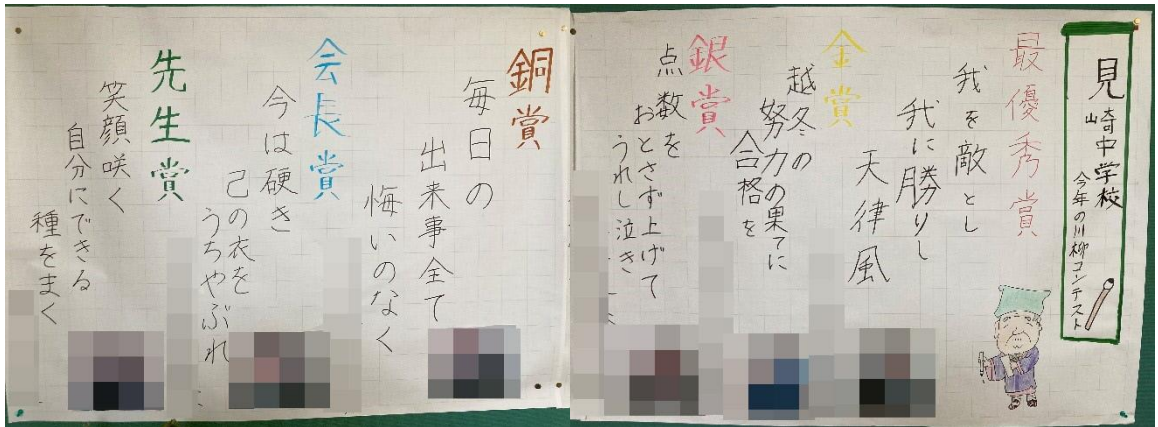 見崎中学校
今年の川柳コンテスト
最優秀賞
我を敵とし
我に勝りし
天律風
金賞
越冬の
努力の果てに
合格を
銀賞
点数を
おとさず上げて
うれし泣き
銅賞
毎日の
出来事全て
悔いのなく
会長賞
今は硬き
己の衣を
うちやぶれ
先生賞
笑顔咲く
自分にできる
種をまく